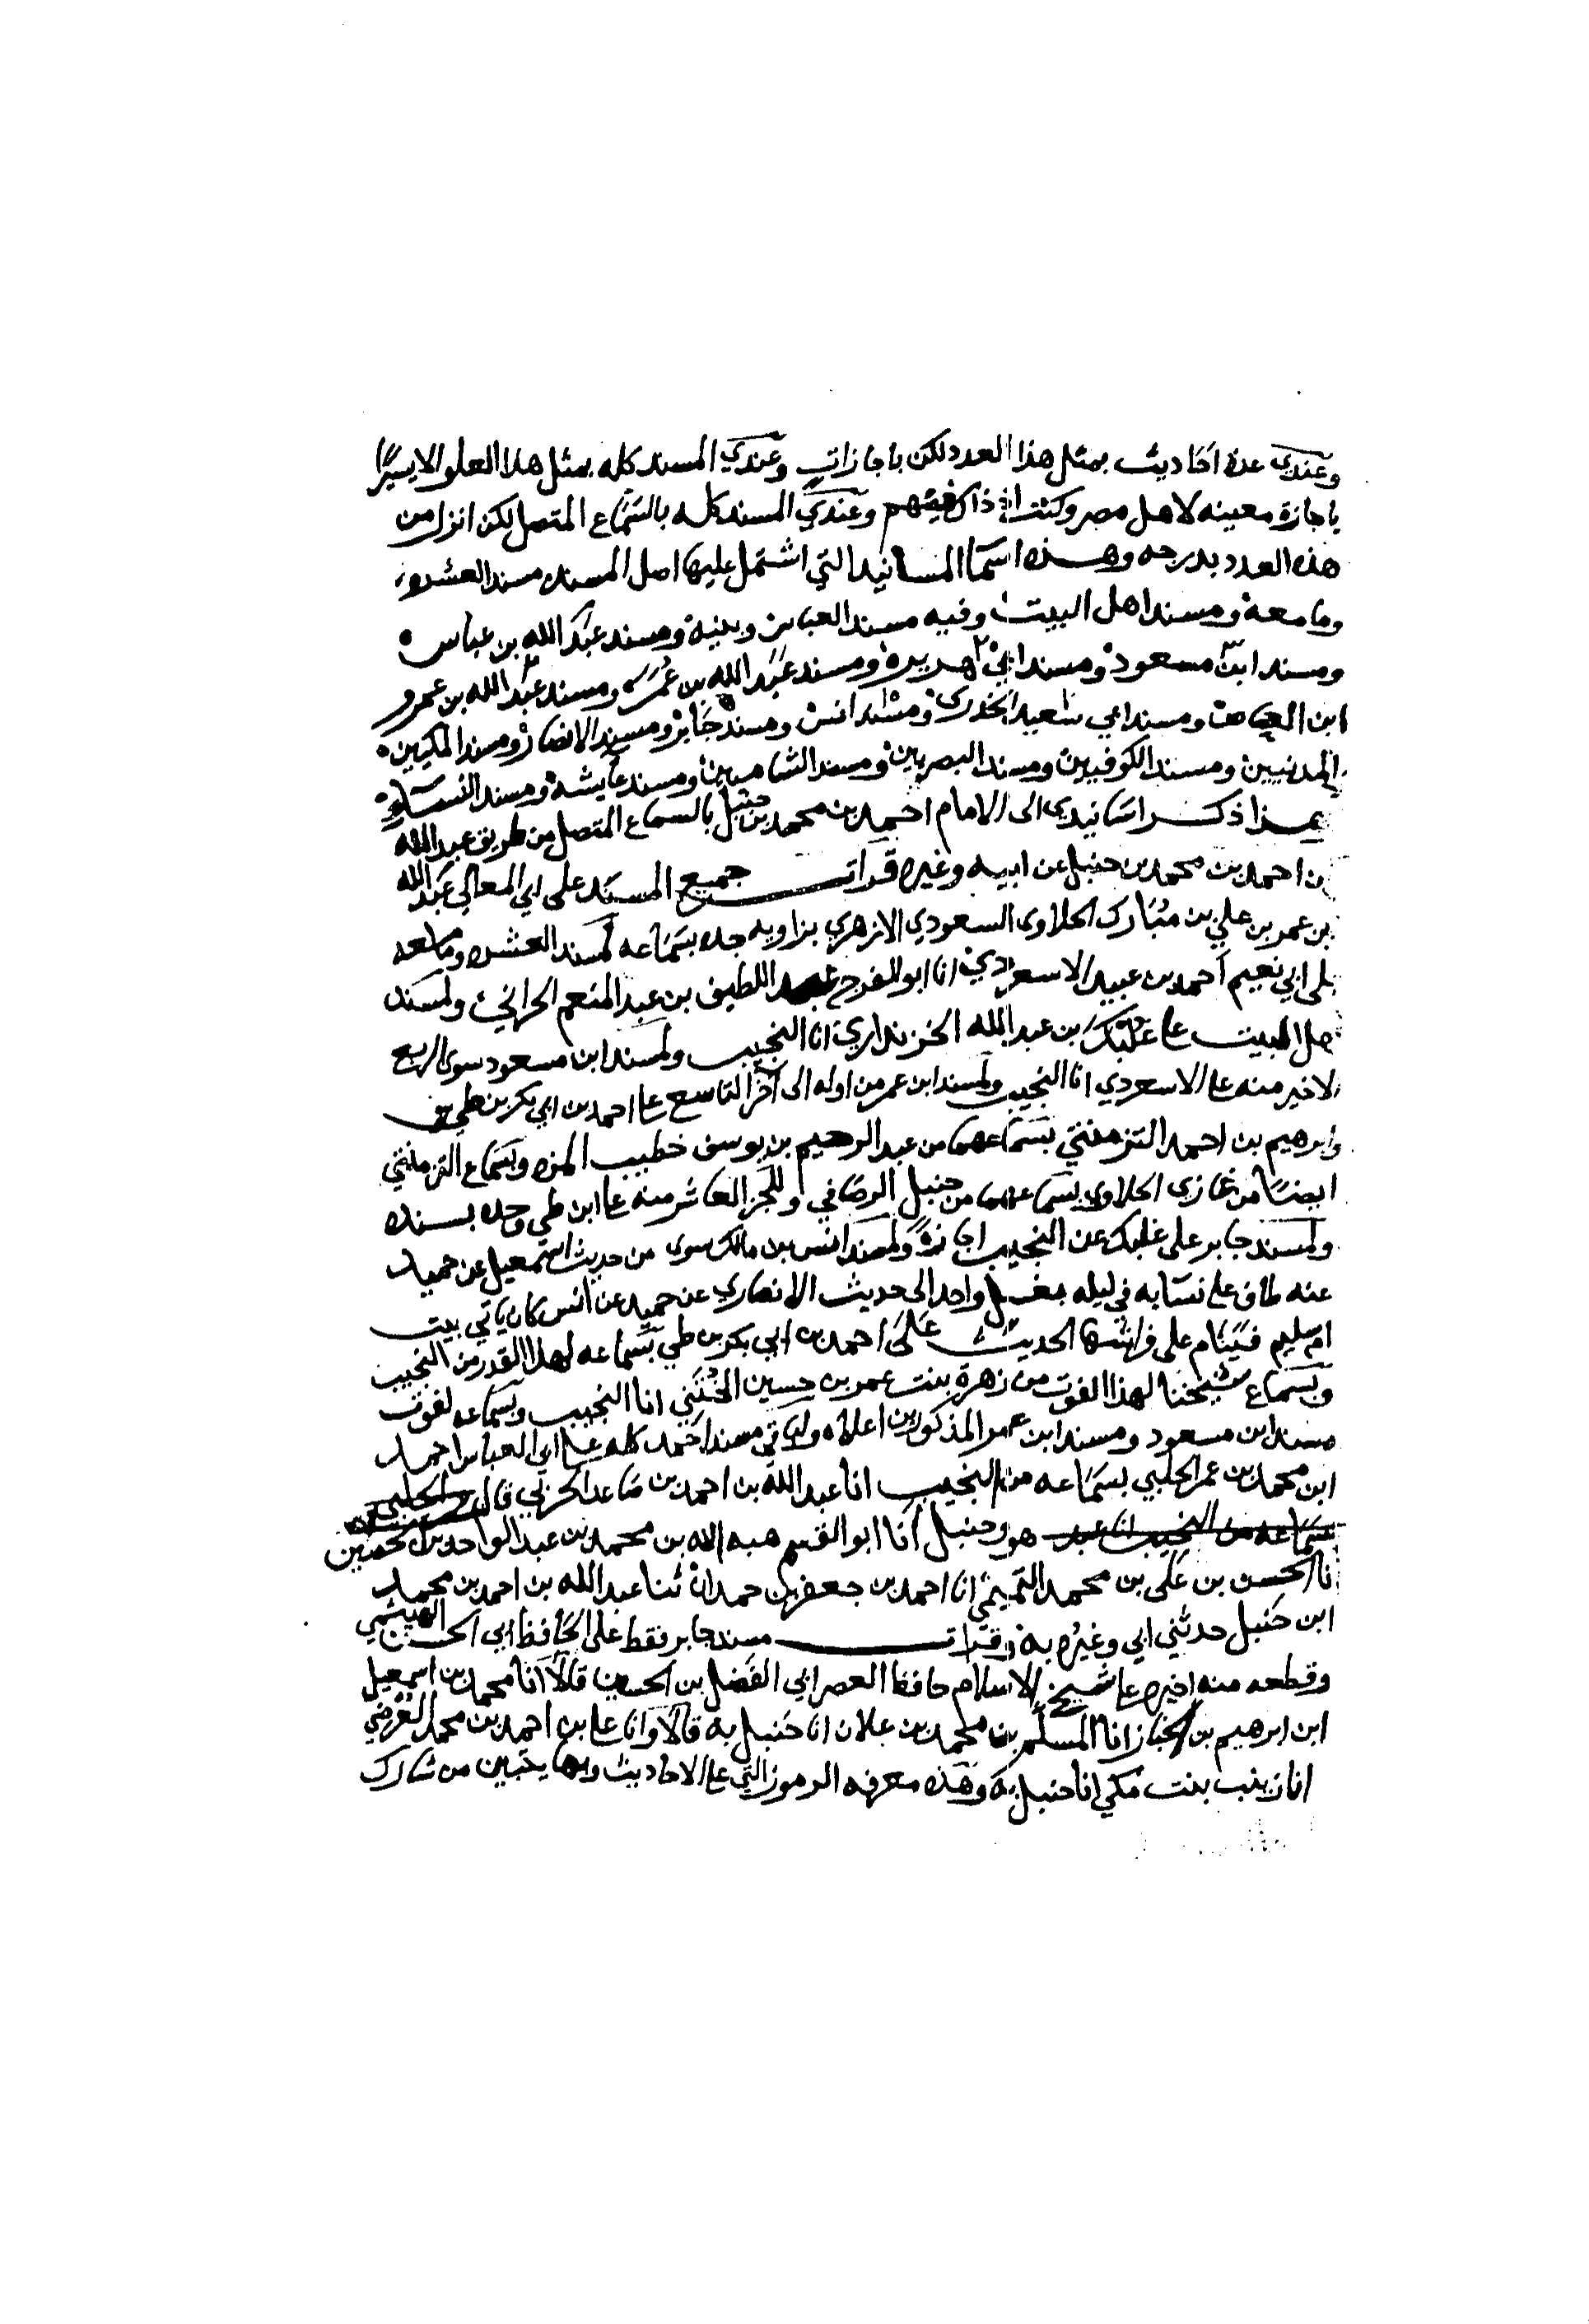 وعندي عدة احاديث بمثل هذا العدد لكن باجازات وعندي المسند كله بمثل هذا العلو الا يسيرا
باجازة معينه لاهل مصر وكنت اذ ذاك فيهم وعندي المسند كله بالسماع المتصل لكن انزل من
هذه العدد بدرجه وهذه اسما المسانيد التي اشتمل عليها اصل المسند مسند العشره
وما معه ومسند اهل البيت وفيه مسند العباس وبنيه ومسند عبد الله بن عباس
ومسند ابن مسعود ومسند ابي هريرة ومسند عبد الله بن عمر ومسند عبد الله بن عمرو
ابن العاص ومسند ابي سعيد الخدري ومسند انس ومسند جابر ومسند الانصار ومسند المكيين
والمدنيين ومسند الكوفيين ومسند البصريين ومسند الشاميين ومسند عايشة ومسند النساء
ذكر اسانيدي الى الامام احمد بن محمد بن حنبل بالسماع المتصل من طريق عبد الله
بن احمد بن محمد بن حنبل عن ابيه وغيره قرات جميع المسند على ابي المعالي عبد الله
بن عمر بن علي بن مبارك الحلاوي السعودي الازهري بزاويه جده بسماعه لمسند العشره وما معه
على ابي نعيم احمد بن عبيد الاسعردي انا ابو الفرج عبد اللطيف بن عبد المنعم الحراني ولمسند
اهل البيت على غلبك بن عبد الله الخزنداري انا النجيب ولمسند ابن مسعود سوى الربع
الاخير منه على الاسعردي انا النجيب ولمسند ابن عمر من اوله الى آخر التاسع على احمد بن ابي بكر بن طي
وابرهيم بن احمد التزمنتي بسماعهما من عبد الرحيم بن يوسف خطيب المزه وبسماع التزمنتي
ايضا من غازي الحلاوي بسماعهما من حنبل الرصافي وللجز العاشر منه على ابن طي وحده بسنده
ولمسند جابر على غلبك عن النجيب اجازة ولمسند انس بن مالك سوى من حديث اسمعيل عن حميد
عنه طاف على نسايه في ليله بغسل واحد الى حديث الانصاري عن حميد عن انس كان ياتي بيت
ام سليم فينام على فراشها الحديث على احمد بن ابي بكر بن طي بسماعه لهذا القدر من النجيب
وبسماع شيخنا لهذا الفوت من زهرة بنت عمر بن حسين الختني انا النجيب وبسماعه لفوت
مسند ابن مسعود ومسند ابن عمر المذكورين اعلاه ولباقي مسند احمد كله على ابي العباس احمد
ابن محمد بن عمر الحلبي بسماعه من النجيب انا عبد الله بن احمد بن صاعد الحربي قال الحلبي
بسماعه من النجيب انا عبد هو وحنبل انا ابو القسم هبه الله بن محمد بن عبد الواحد بن الحصين
انا الحسن بن علي بن محمد التميمي انا احمد بن جعفر بن حمدان ثنا عبد الله بن احمد بن محمد
ابن حنبل حدثني ابي وغيره به وقرات مسند جابر فقط على الحافظ ابي الحسن الهيثمي
وقطعه منه اخيره على شيخ الاسلام حافظ العصر ابي الفضل بن الحسين قالا انا محمد بن اسمعيل
ابن ابرهيم بن الخباز انا المسلم بن محمد بن علان انا حنبل به قالا وانا علي بن احمد بن محمد العرضي
انا زينب بنت مكي انا حنبل به وهذه معرفه الرموز التي على الاحاديث وبها يتبين من شارك